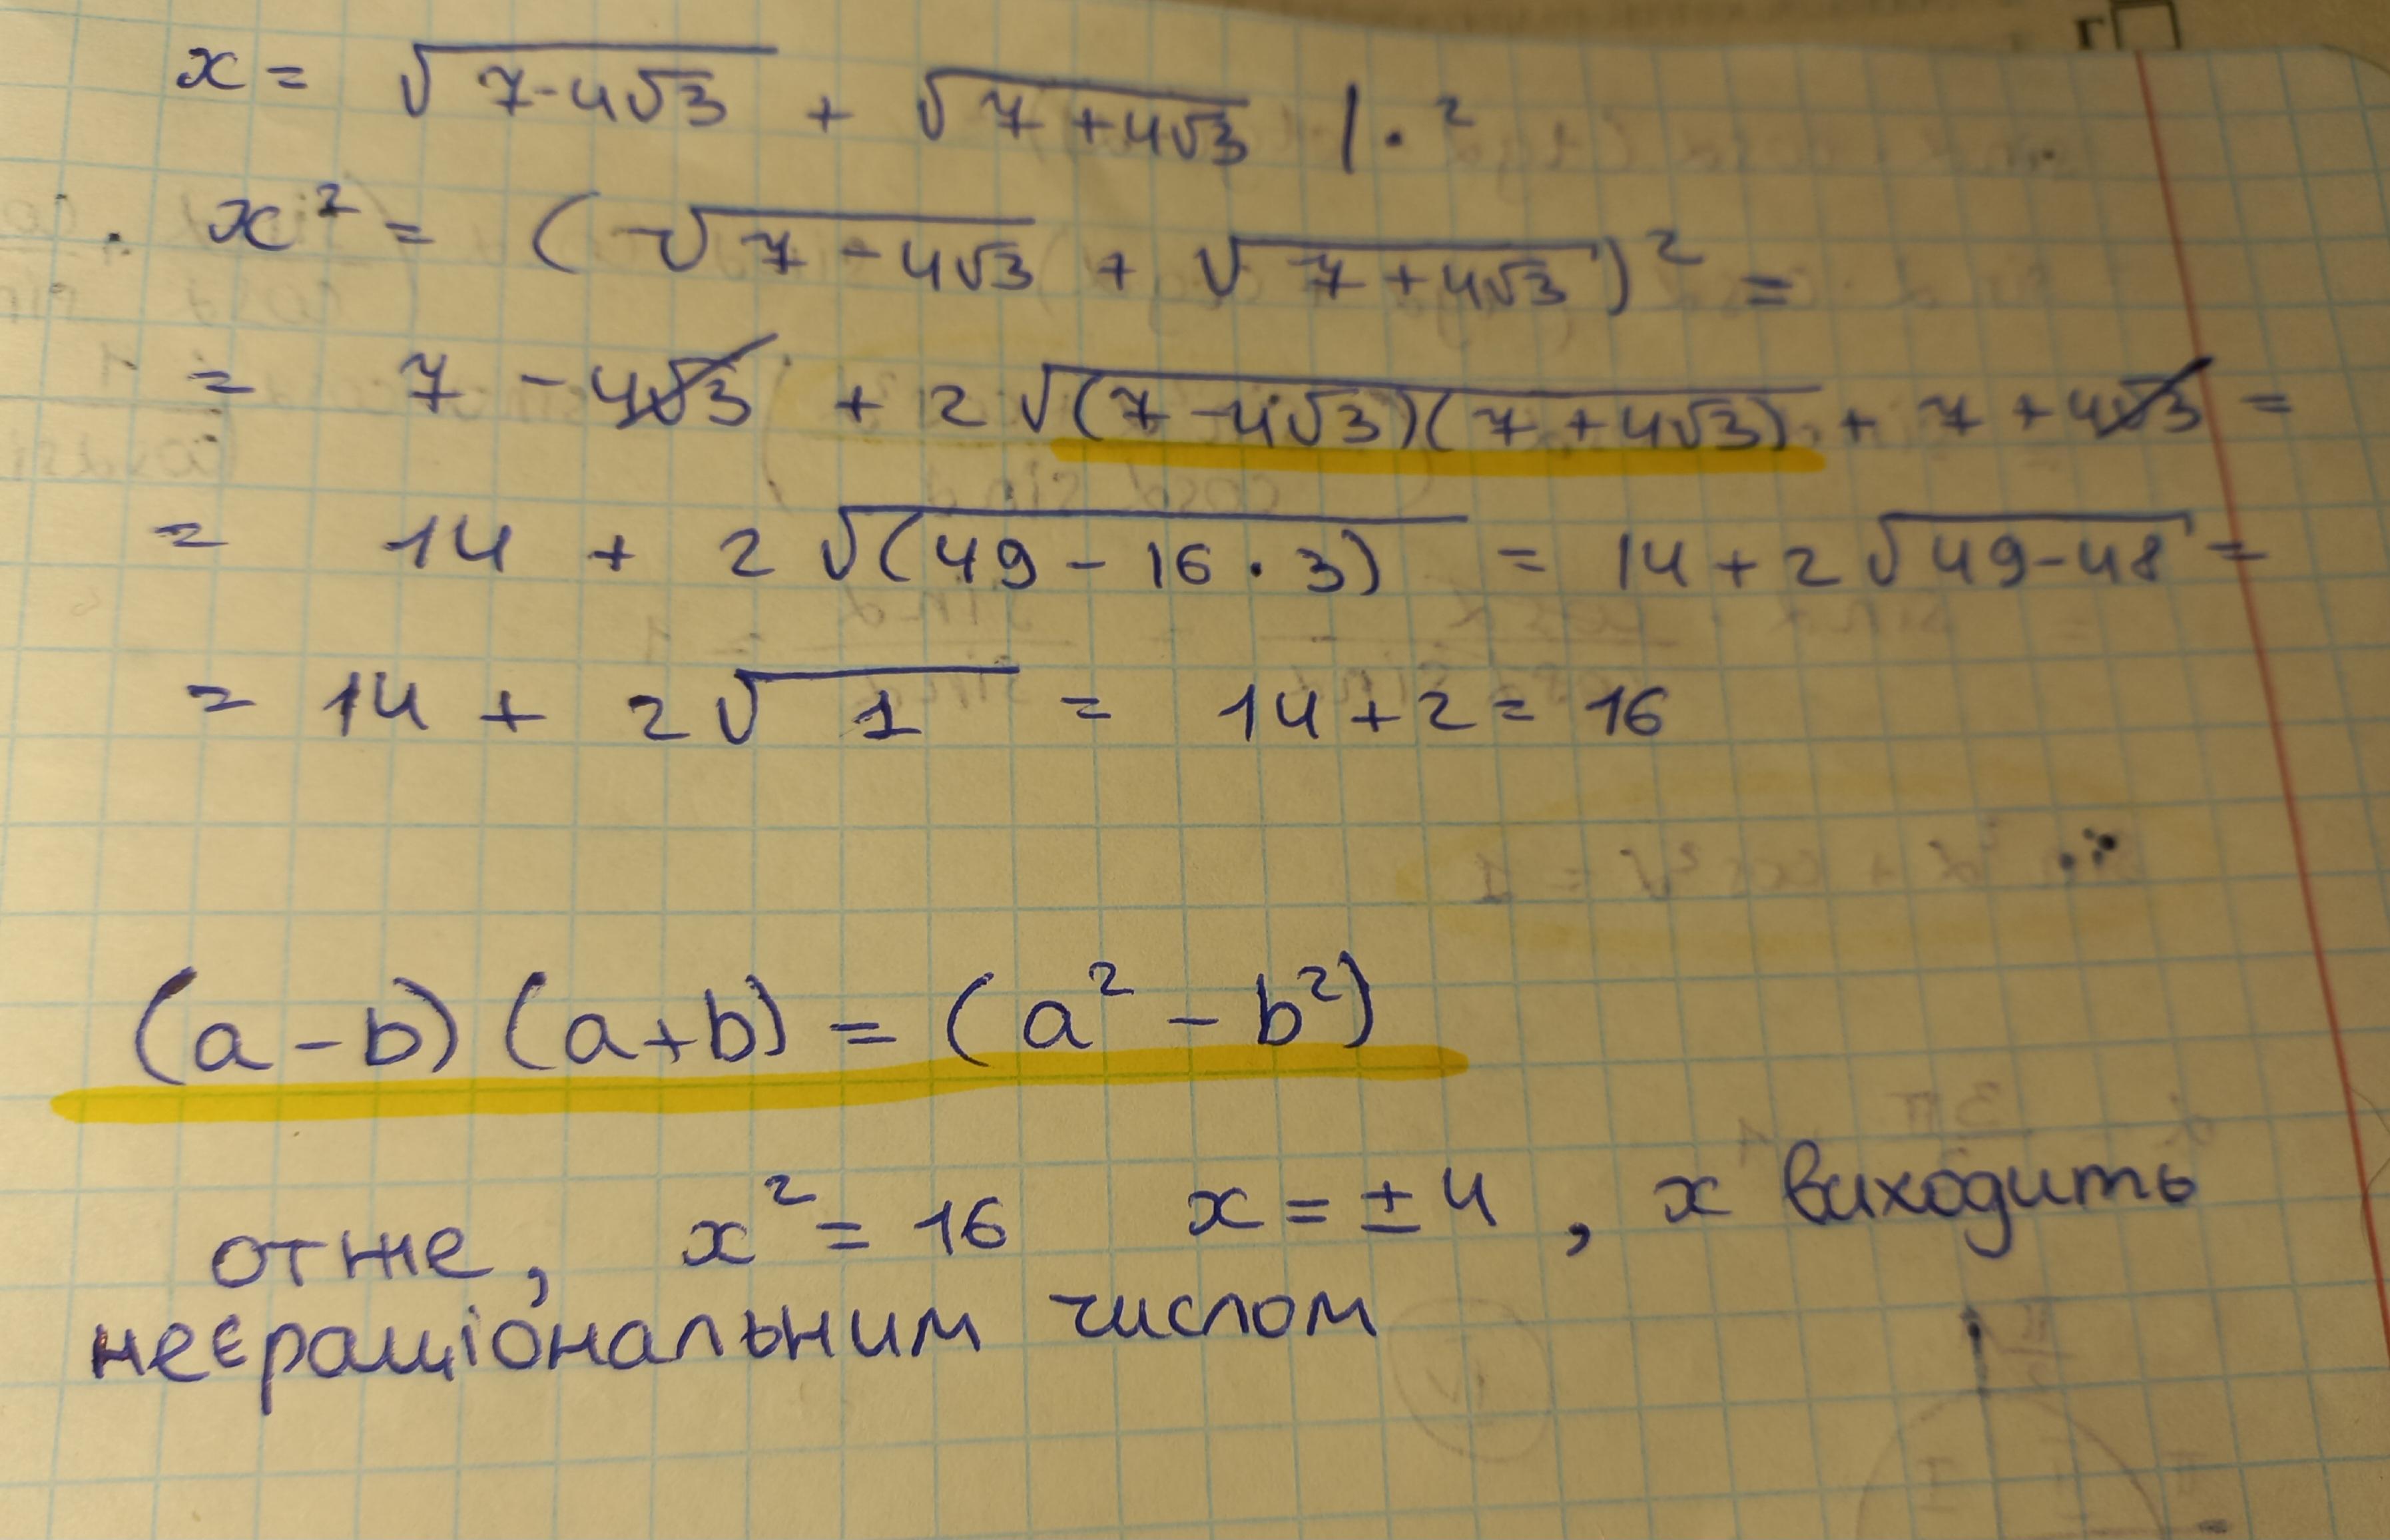 г
x = √(7-4√3) + √(7+4√3) | · ²
x² = (√(7-4√3) + √(7+4√3))² =
= 7 - 4√3 + 2√((7-4√3)(7+4√3)) + 7 + 4√3 =
= 14 + 2√((49-16·3)) = 14+2√(49-48) =
= 14 + 2√1 = 14+2 = 16
(a-b)(a+b) = (a² - b²)
отже, x² = 16 x = ±4, x виходить
неєраціональним числом